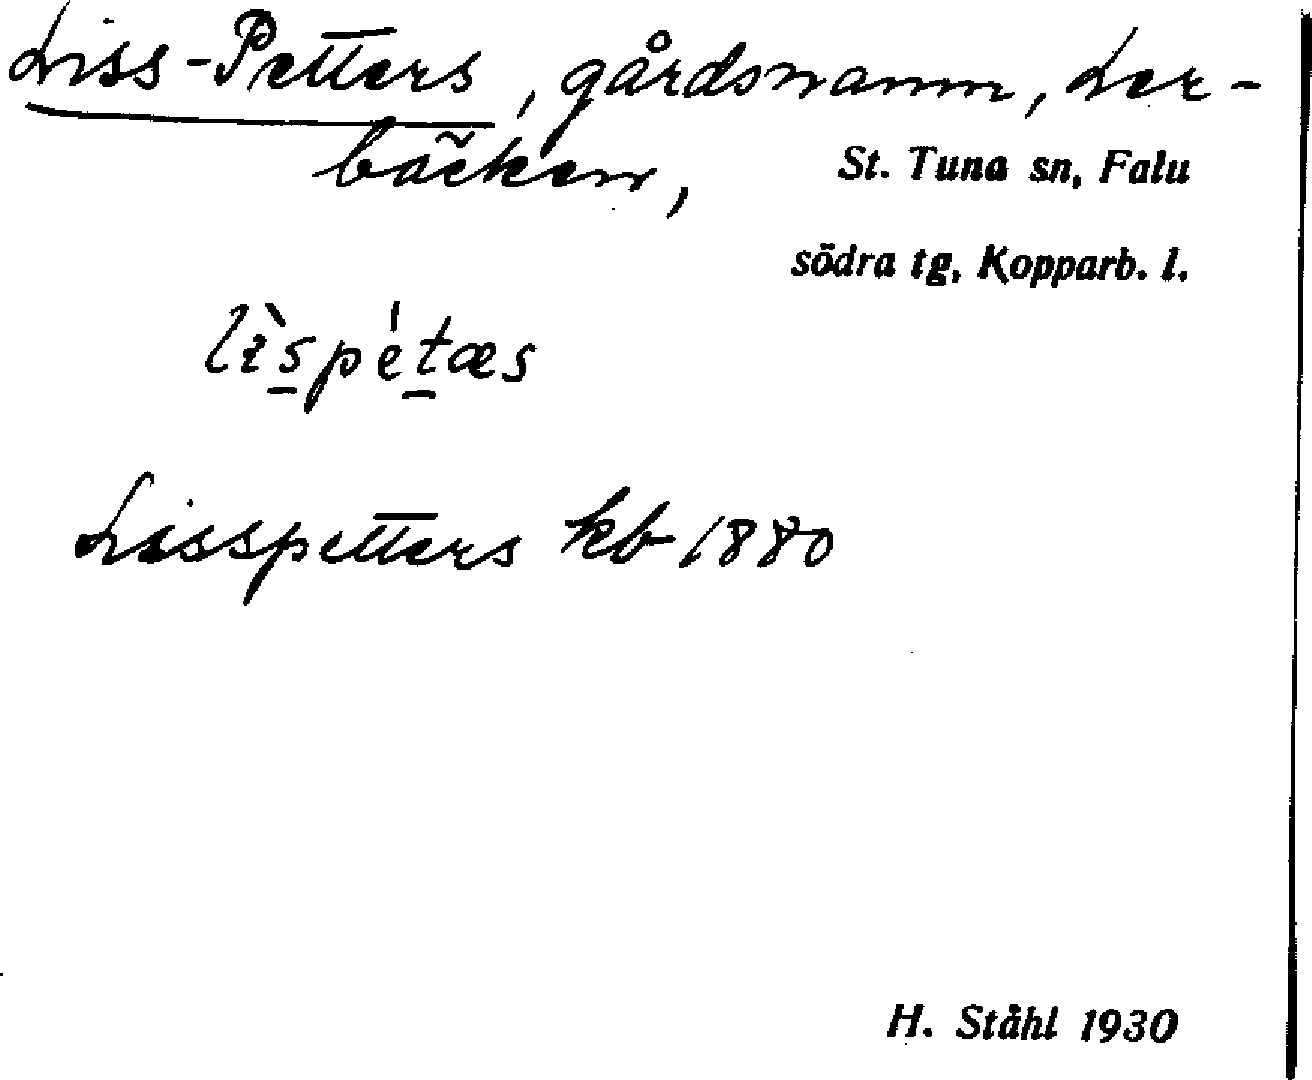 Liss-Petters, gårdsnamn, Ler-
bäcken,
St. Tuna sn, Falu
södra tg, Kopparb. l.
lìspétæs
Lisspetters kb 1880
H. Ståhl 1930